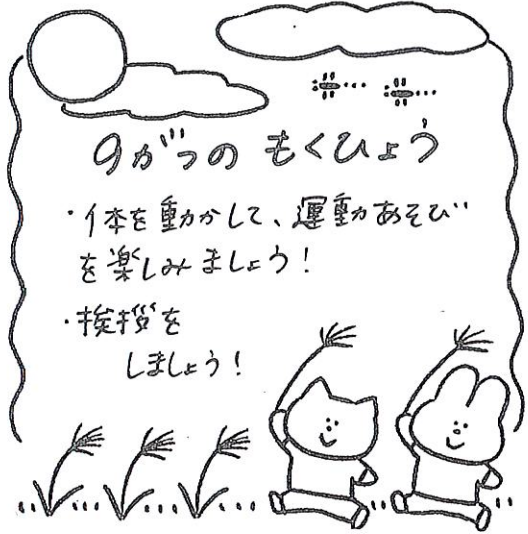 9がつの もくひょう
・体を動かして、運動あそび
を楽しみましょう！
・挨拶を
しましょう！